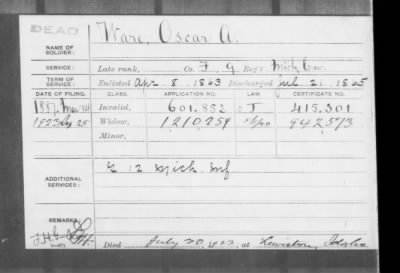 DEAD
NAME OF SOLDIER: Ware, Oscar A.
SERVICE: Late rank, Co. F, 9 Reg't Mich Cav.
TERM OF SERVICE: Enlisted Apr. 8, 1863 Discharged Jul. 21, 1865
DATE OF FILING. CLASS. APPLICATION NO. LAW. CERTIFICATE NO.
1887, Invalid, 601.852 415.301
1923 Aug 25 Widow, 1210259 942573
Minor,
ADDITIONAL SERVICES: G 12 Mich Inf
REMARKS:
Died July 20, at Lewiston, Idaho